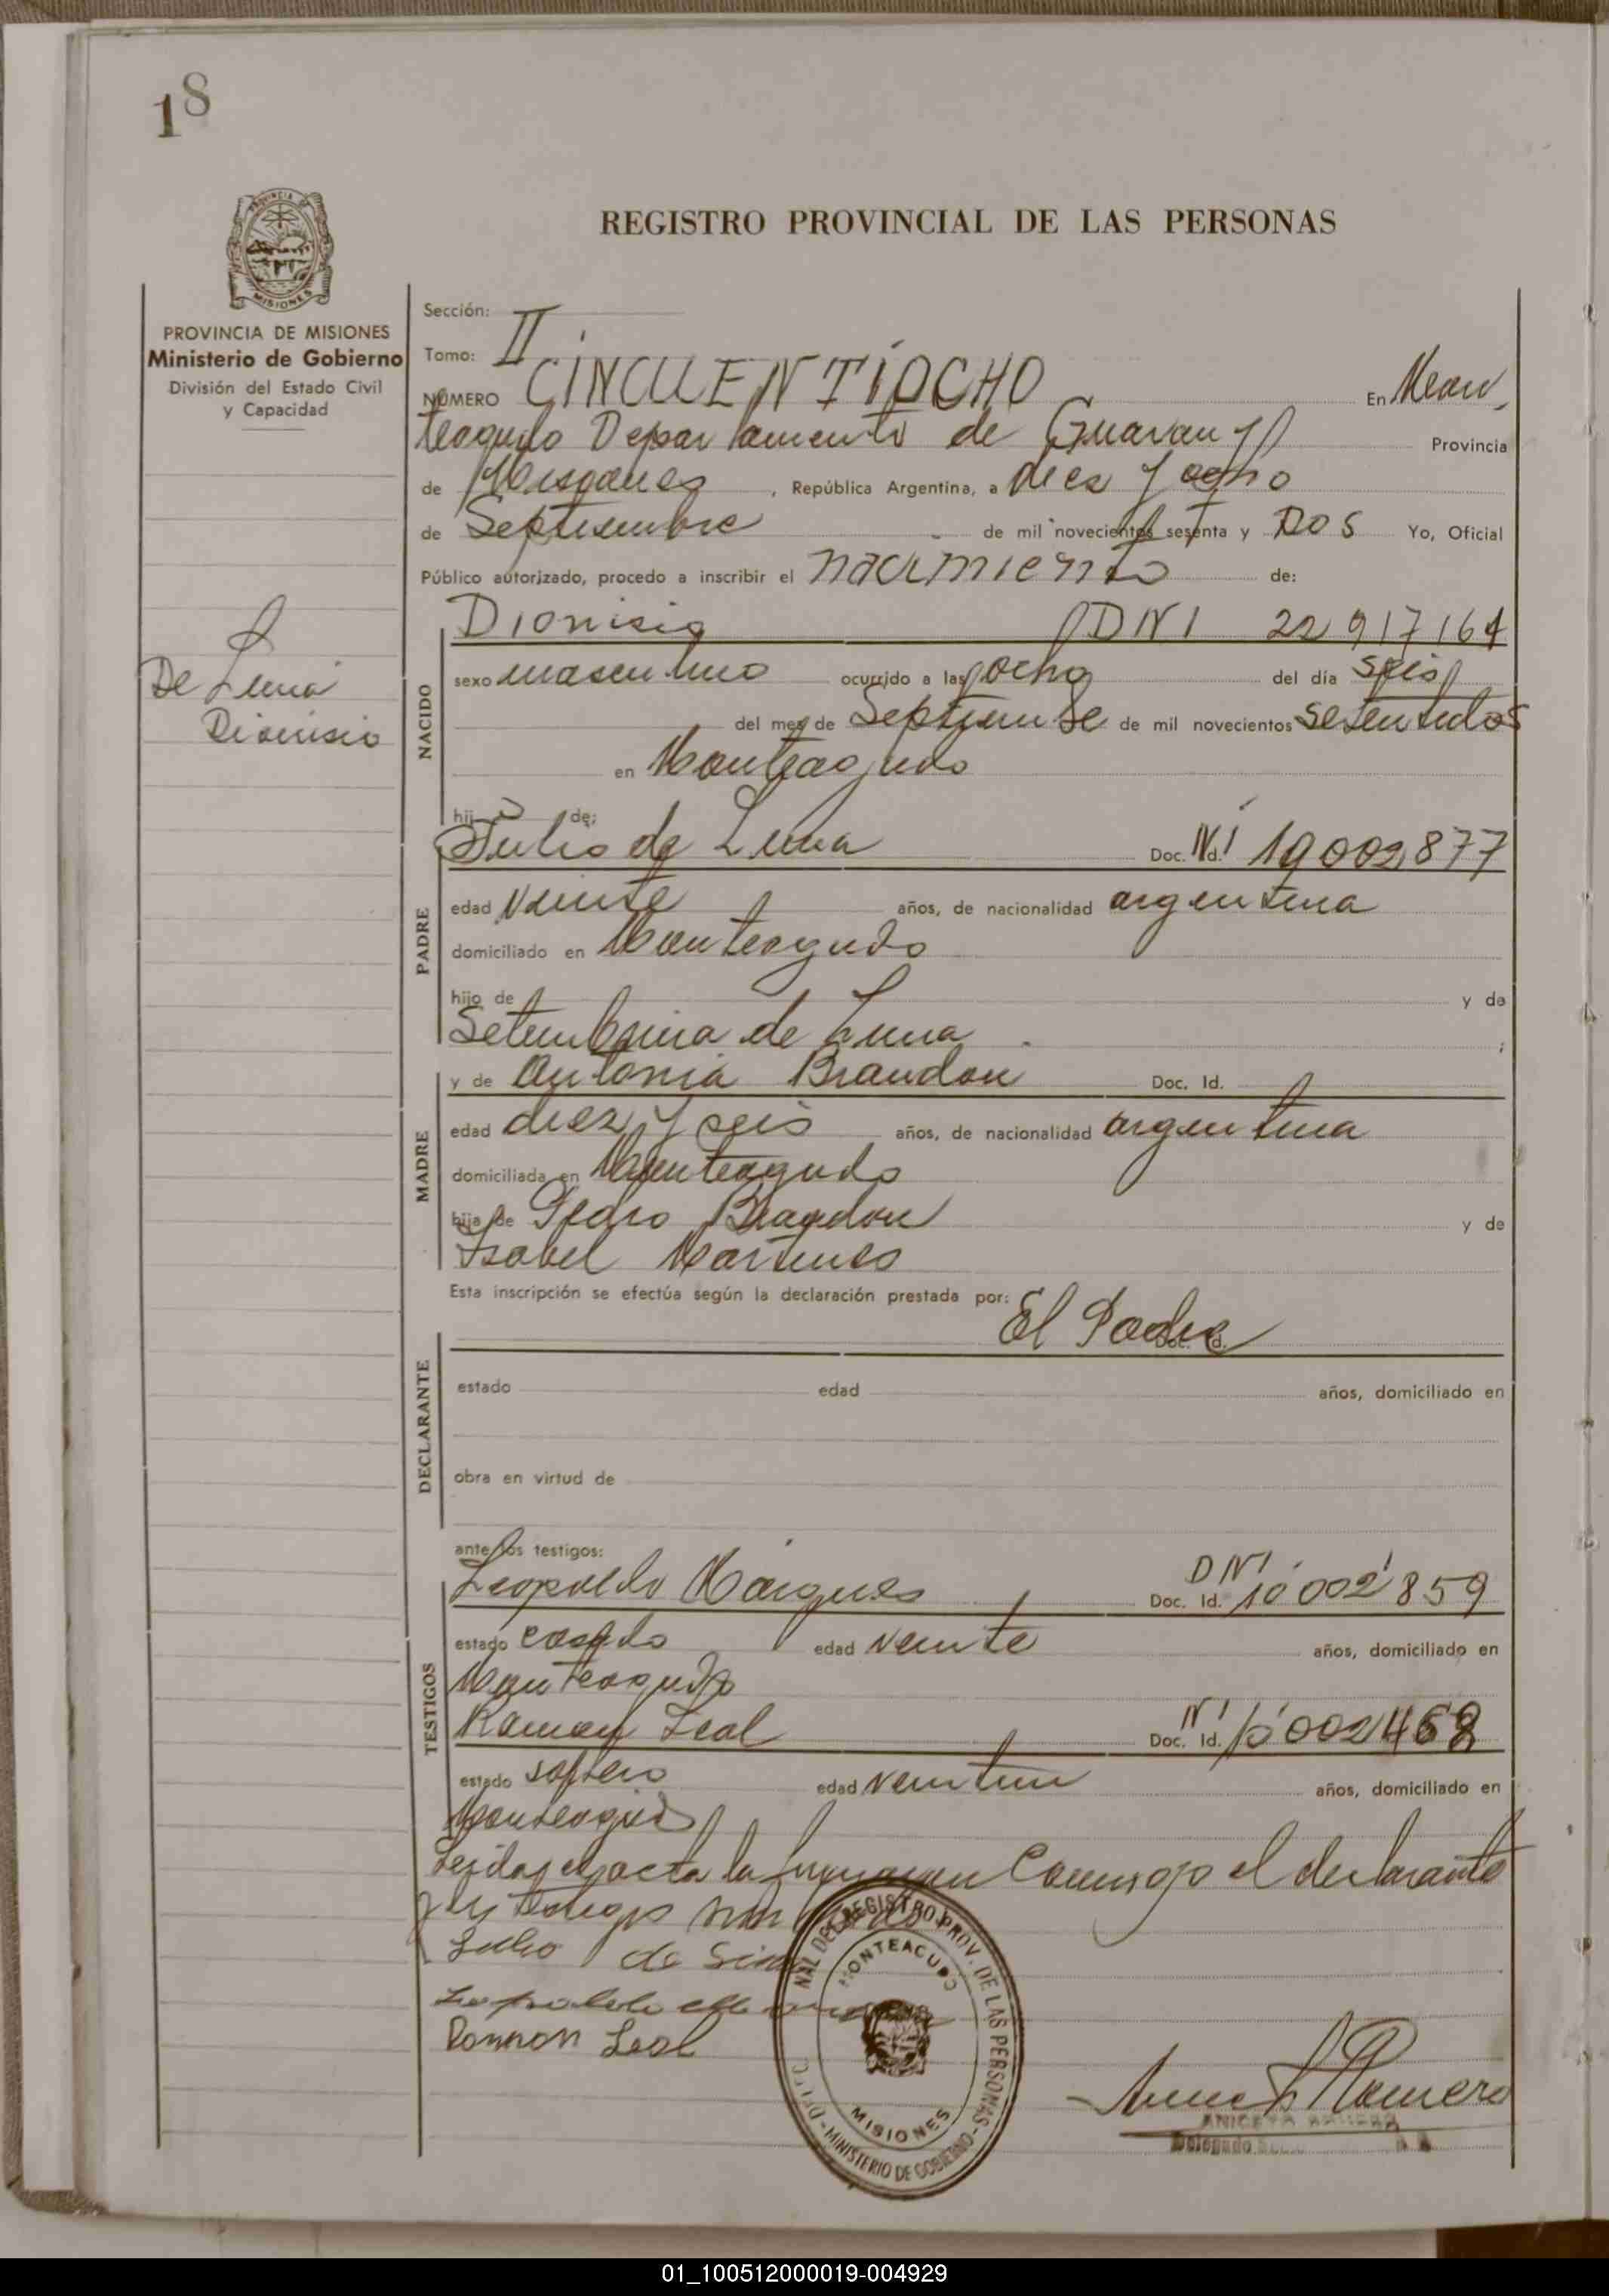 18
REGISTRO PROVINCIAL DE LAS PERSONAS
PROVINCIA DE MISIONES
Ministerio de Gobierno
División del Estado Civil
y Capacidad
De Luna
Dionisio
Sección:
Tomo: II
NÚMERO CINCUENTIOCHO En Mon
teagudo Departamento de Guarany Provincia
de Misiones, República Argentina, a diez y ocho
de Septiembre de mil novecientos sesenta y DOS Yo, Oficial
Público autorizado, procedo a inscribir el nacimiento de:
NACIDO
Dionisio DNI 22 917 164
sexo masculino ocurrido a las ocho del día seis
del mes de Septiembre de mil novecientos setentidos
en Monteagudo
hijo de:
PADRE
Julio de Luna Doc. Id. NI 10 002 877
edad veinte años, de nacionalidad argentina
domiciliado en Monteagudo
hijo de y de
Setembrina de Luna ;
MADRE
y de Antonia Brandon Doc. Id.
edad diez y seis años, de nacionalidad argentina
domiciliada en Monteagudo
hija de Pedro Brandon y de
Isabel Martines
Esta inscripción se efectúa según la declaración prestada por:
El Padre Doc. Id.
DECLARANTE
estado edad años, domiciliado en
obra en virtud de
ante los testigos:
TESTIGOS
Leopoldo Marques Doc. Id. DNI 10 002 859
estado casado edad veinte años, domiciliado en
Monteagudo
Ramon Leal Doc. Id. NI 10 002 468
estado soltero edad veintiun años, domiciliado en
Monteagudo
Leida el acta la firman Conmigo el declarante
y los testigos
Julio de
Ramon Leal
DEL REGISTRO PROV. DE LAS PERSONAS - MINISTERIO DE GOBIERNO
MONTEAGUDO
MISIONES
Romero
Delegado
01_100512000019-004929